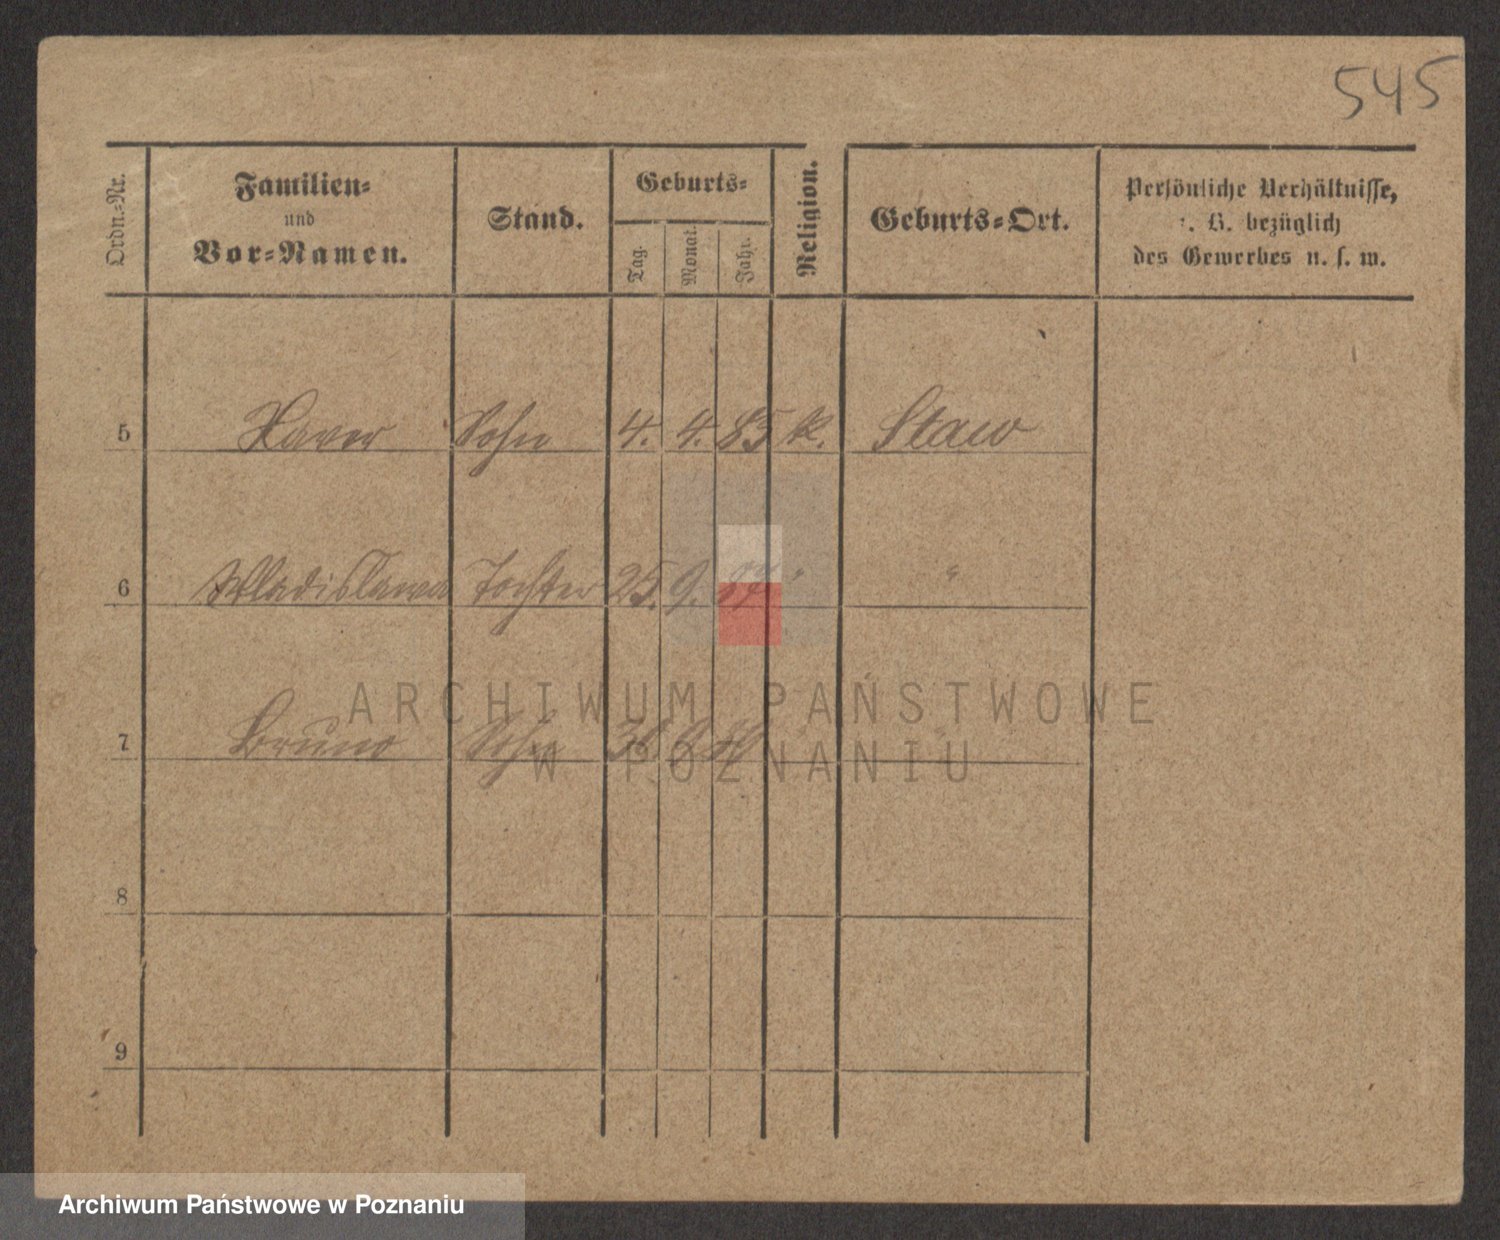 545
Ordn.-Nr.
Familien-
und
Vor-Namen.
Stand.
Geburts-
Tag.
Monat.
Jahr.
Religion.
Geburts-Ort.
Persönliche Verhältnisse,
z. B. bezüglich
des Gewerbes u. s. w.
5 Xaver Sohn 4. 4. 85 k. Staw
6 Wladislawa Tochter 25. 9. 87 " "
7 Bruno Sohn 30. 9. "
8
9
ARCHIWUM PAŃSTWOWE
W POZNANIU
Archiwum Państwowe w Poznaniu